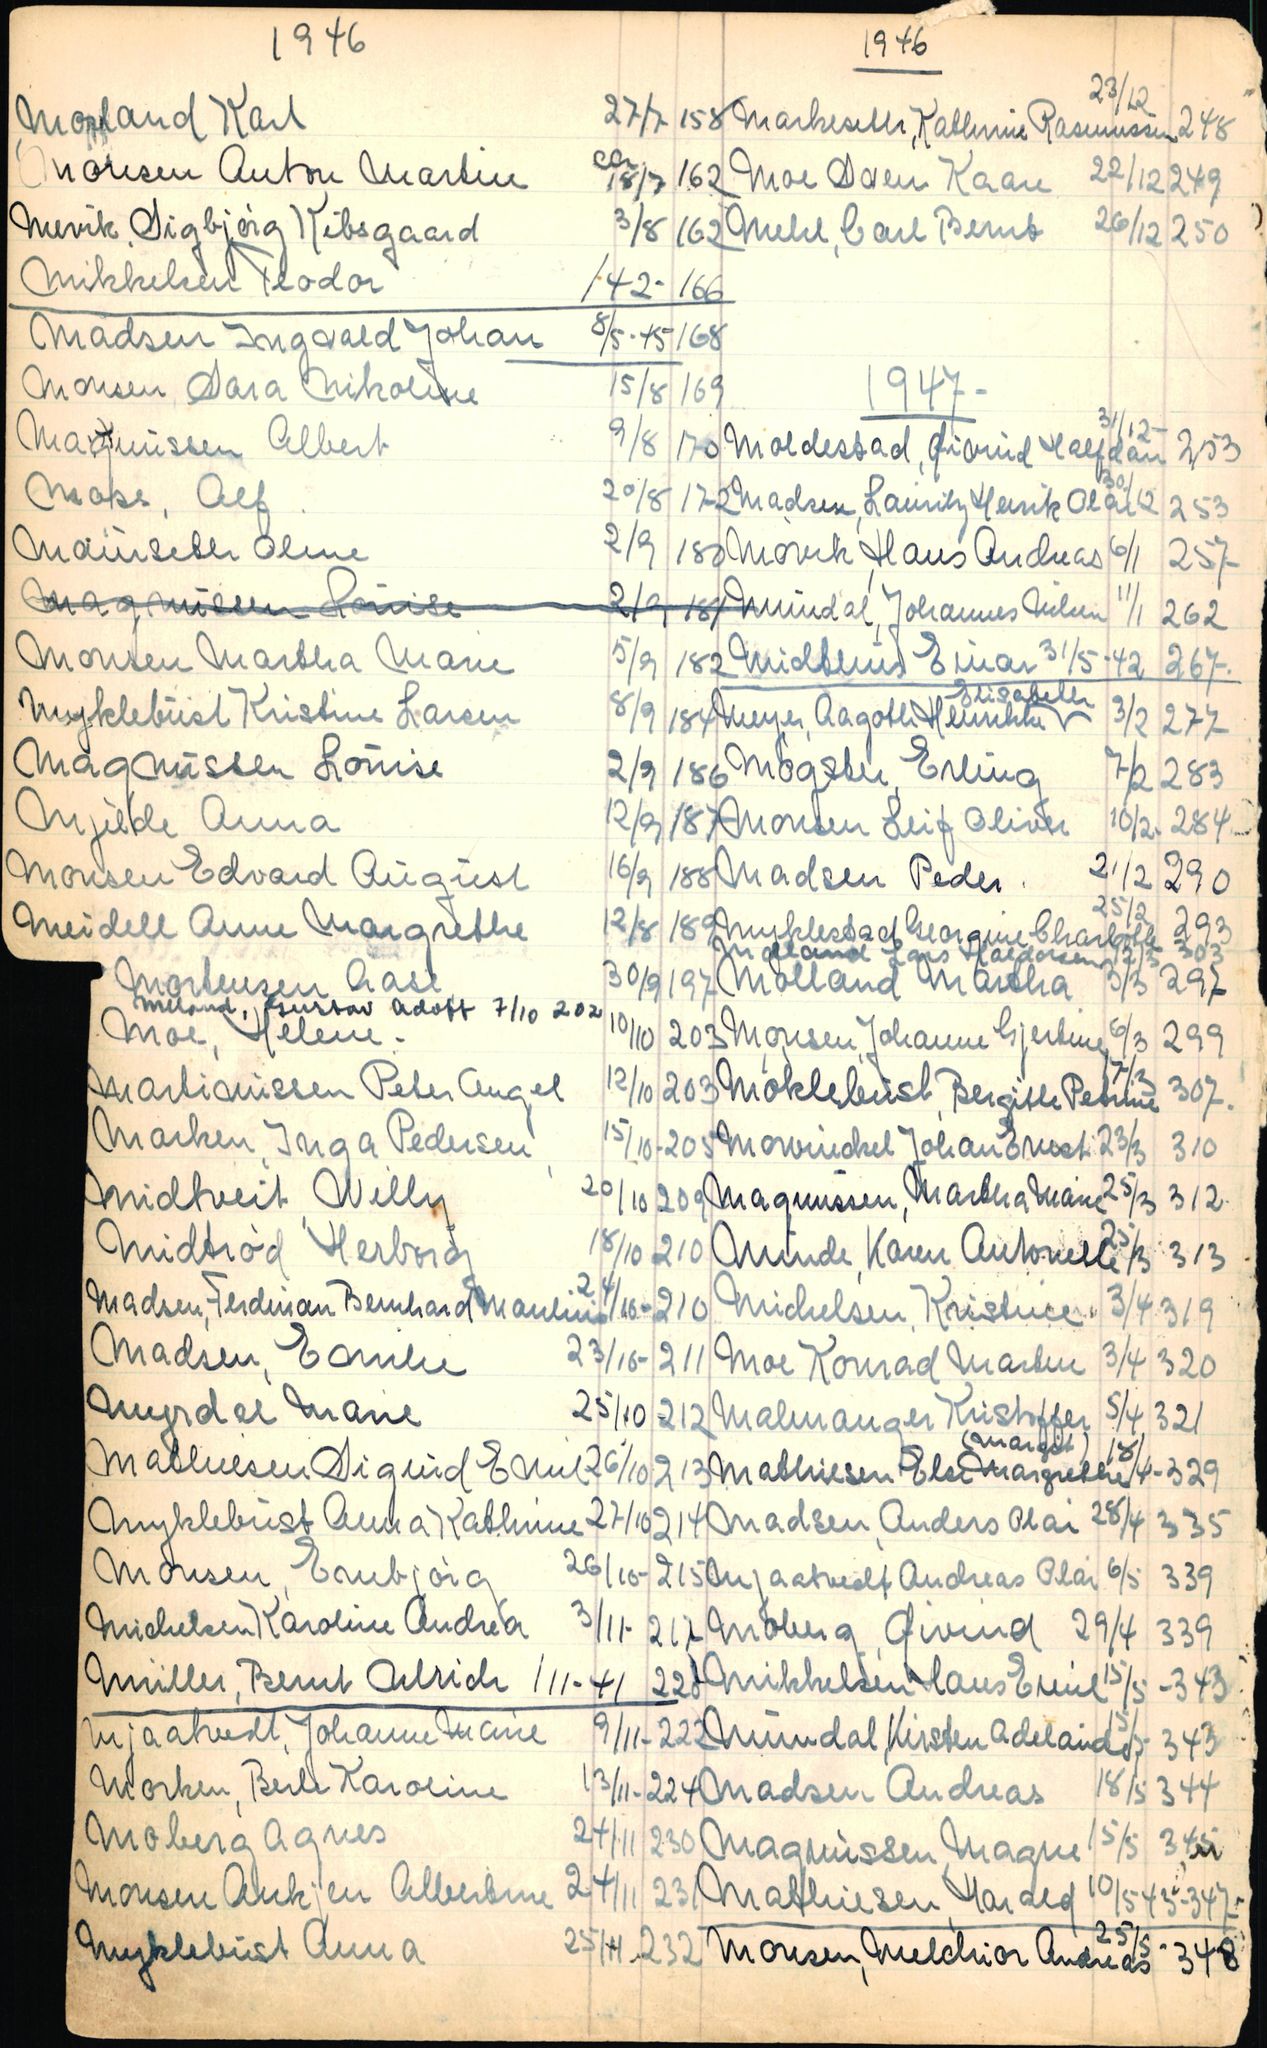 1946
Mopland Karl 27/7 158
Monsen Anton Martin ca 18/7 162
Mevik, Sigbjørg Kibsgaard 3/8 162
Mikkelsen Teodor /42- 166
Madsen Ingvald Johan 8/5-45 168
Monsen, Sara Nikoline 15/8 169
Magnussen Albert 9/8 170
Moss, Alf 20/8 172
Maurseth Oline 2/9 180
Magnussen Louise 2/9 181
Monsen Martha Marie 5/9 182
Myklebust Kristine Larsen 8/9 184
Magnussen Louise 2/9 186
Mjelde Anna 12/9 187
Monsen Edvard August 16/9 188
Meidell Anne Margrethe 12/8 189
Mortensen Aase 30/9 197
Meland, Gustav Adolf 7/10 202
Moe, Helene. 10/10 203
Martinussen Peter Angel 12/10 203
Marken, Inga Pedersen 15/10-205
Midtveit, Willy 20/10 209
Midtrød Herborg 18/10 210
Madsen, Ferdinan Bernhard Maulin 24/10-210
Madsen, Emilie 23/10-211
Myrdal Marie 25/10-212
Mathiesen Sigurd Emil 26/10 213
Myklebust Anna Kathrine 27/10 214
Monsen, Ernbjørg 26/10-215
Michelsen Karoline Andrea 3/11-217
Müller, Bernt Ulrich /11-41 220
Mjaatvedt, Johanne Marie 9/11-222
Morken, Berte Karoline 13/11-224
Moberg Agnes 24/11 230
Monsen Ankjer Albertine 24/11 231
Myklebust Anna 25/11 232
1946
Markeseth, Kathrine Rasmussen 23/12 248
Moe Søren Kaare 22/12 249
Mehl, Carl Bernt 26/12 250
1947-
Moldestad, Øivind Halfdan 31/12- 253
Madsen, Lauritz Henrik Olai 30/12 253
Mövik, Hans Andreas 6/1 257
Mundal, Johannes Nilsen 11/1 262
Midthus Einar 31/5-42 267.
Elisabeth
Meyer, Aagoth Henrikke 3/2 277
Møgster, Erling 7/2 283
Monsen Leif Oliver 10/2- 284
Madsen Peder. 21/2 290
Myklestad Georgine Charlotte 25/2 293
Molland Lars Haldorsen 12/3 303
Molland Martha 3/3 297
Monsen, Johanne Gjertine 6/3 299
Moklebust, Bergitte Petrine 17/3 307.
Mowinckel Johan Ernst 23/3 310
Magnussen, Martha Marie 25/3 312
Munde, Karen Antonette 25/3 313
Michelsen, Kristine 3/4 319
Moe Konrad Martin 3/4 320
Malmanger Kristoffer 5/4 321
(Margit)
Mathiesen Else Margrethe 18/4-329
Madsen, Anders Olai 28/4 335
Mjaatvedt, Andreas Olai 6/5 339
Moberg, Øivind 29/4 339
Mikkelsen Hans Emil 15/5 -343
Mundal, Kirsten Adelaide 13/5- 343
Madsen Andreas 18/5 344
Magnussen, Magne 15/5 345
Mathiesen, Harald 10/5 45-347-
Monsen, Melchior Andreas 25/5 348